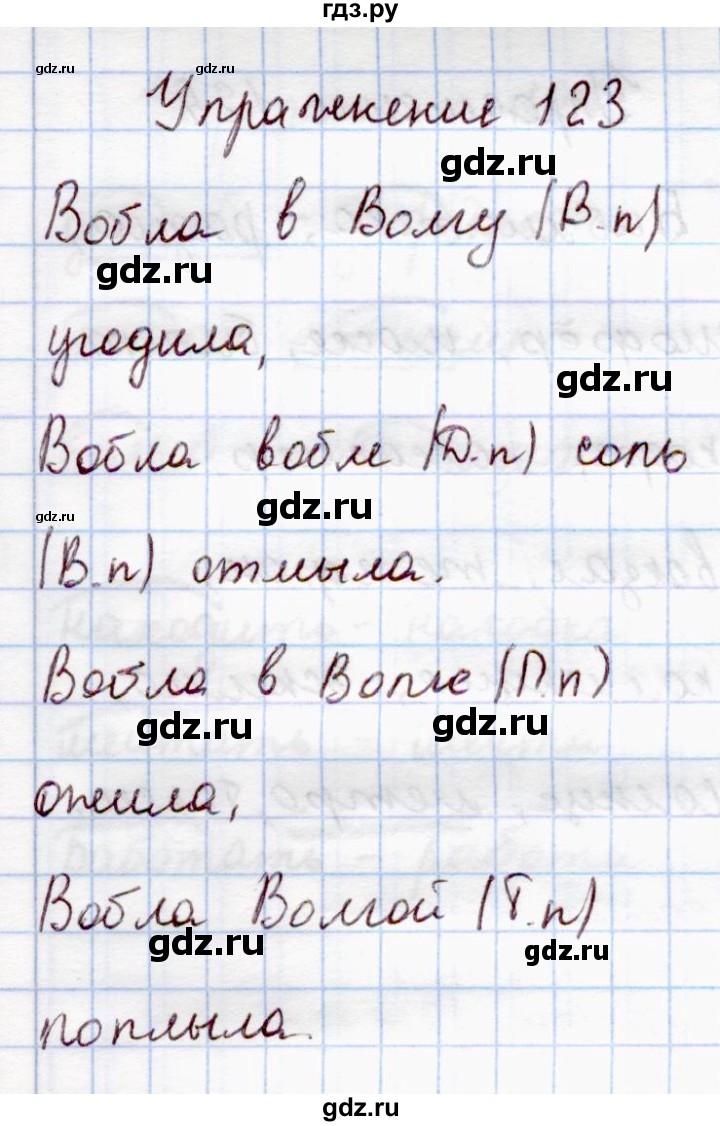 гдз.ру
gdz.ru
Упражнение 123
gdz.ru
Вобла в Волгу (В.п)
gdz.ru
угодила,
gdz.ru
Вобла вобле (Д.п) соль
gdz.ru
gdz.ru
(В.п) отмыла.
Вобла в Волге (П.п)
gdz.ru
gdz.ru
ожила,
Вобла Волгой (Т.п)
gdz.ru
gdz.ru
поплыла.
gdz.ru